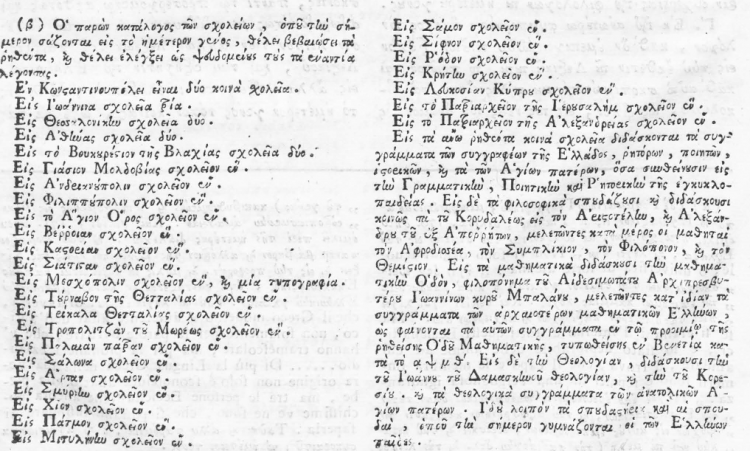 (β) Ὁ παρὼν κατάλογος τῶν σχολείων, ὁποῦ τὴν σή-
μερον σώζονται εἰς τὸ ἡμέτερον γένος, θέλει βεβαιώσει τὰ
ῥηθέντα, ϗ θέλει ἐλέγξει ὡς ψευδομένους τοὺς τὰ ἐναντία
λέγοντας.
Ἐν Κωνσταντινουπόλει εἶναι δύο κοινὰ σχολεῖα.
Εἰς Ἰωάννινα σχολεῖα τρία.
Εἰς Θεσσαλονίκην σχολεῖα δύο.
Εἰς Ἀθήνας σχολεῖα δύο.
Εἰς τὸ Βουκυρέσιον τῆς Βλαχίας σχολεῖα δύο.
Εἰς Γιάσιον Μολδοβίας σχολεῖον ἕν.
Εἰς Ἀνδριανούπολιν σχολεῖον ἕν.
Εἰς Φιλιππούπολιν σχολεῖον ἕν.
Εἰς τὸ Ἅγιον Ὄρος σχολεῖον ἕν.
Εἰς Βέρροιαν σχολεῖον ἕν.
Εἰς Καστορίαν σχολεῖον ἕν.
Εἰς Σιάτισταν σχολεῖον ἕν.
Εἰς Μοσχόπολιν σχολεῖον ἕν, ϗ μία τυπογραφία.
Εἰς Τύρναβον τῆς Θετταλίας σχολεῖον ἕν.
Εἰς Τρίκαλα Θετταλίας σχολεῖον ἕν.
Εἰς Τροπολιτζὰν τοῦ Μωρέως σχολεῖον ἕν.
Εἰς Παλαιὰν πάτραν σχολεῖον ἕν.
Εἰς Σάλωνα σχολεῖον ἕν.
Εἰς Ἄρταν σχολεῖον ἕν.
Εἰς Σμύρνην σχολεῖον ἕν.
Εἰς Χίον σχολεῖον ἕν.
Εἰς Πάτμον σχολεῖον ἕν.
Εἰς Μιτυλήνην σχολεῖον ἕν.
Εἰς Σάμον σχολεῖον ἕν.
Εἰς Σίφνον σχολεῖον ἕν.
Εἰς Ῥόδον σχολεῖον ἕν.
Εἰς Κρήτην σχολεῖον ἕν.
Εἰς Λευκοσίαν Κύπρου σχολεῖον ἕν.
Εἰς τὸ Πατριαρχεῖον τῆς Ἱερουσαλὴμ σχολεῖον ἕν.
Εἰς τὸ Πατριαρχεῖον τῆς Ἀλεξανδρείας σχολεῖον ἕν.
Εἰς τὰ ἄνω ῥηθέντα κοινὰ σχολεῖα διδάσκονται τὰ συγ-
γράμματα τῶν συγγραφέων τῆς Ἑλλάδος, ῥητόρων, ποιητῶν,
ἱστορικῶν, ϗ τὰ τῶν Ἁγίων πατέρων, ὅσα συντείνουσιν εἰς
τὴν Γραμματικὴν, Ποιητικὴν καὶ Ῥητορικὴν τῆς ἐγκυκλο-
παιδείας. Εἰς δὲ τὰ φιλοσοφικὰ σπουδάζουσι ϗ διδάσκουσι
κοινῶς τὰ τοῦ Κορυδαλέως εἰς τὸν Ἀριστοτέλην, ϗ Ἀλεξάν-
δρου τοῦ ἐξ Ἀπορρήτων, μελετῶντες κατὰ μέρος οἱ μαθηταὶ
τὸν Ἀφροδισέα, τὸν Συμπλίκιον, τὸν Φιλόπονον, ϗ τὸν
Θεμίστιον. Εἰς τὰ μαθηματικὰ διδάσκουσι τὴν μαθημα-
τικὴν Ὁδὸν, φιλοπόνημα τοῦ Αἰδεσιμωτάτου Ἀρχιπρεσβυ-
τέρου Ἰωαννίνων κυροῦ Μπαλάνου, μελετῶντες κατ' ἰδίαν τὰ
συγγράμματα τῶν ἀρχαιοτέρων μαθηματικῶν Ἑλλήνων
ὡς φαίνονται τὰ αὐτῶν συγγράμματα ἐν τῷ προοιμίῳ τῆς
ῥηθείσης Ὁδοῦ Μαθηματικῆς, τυπωθείσης ἐν Βενετίᾳ κα-
τὰ τὸ αψμθ'. Εἰς δὲ τὴν Θεολογίαν, διδάσκουσι τὴν
τοῦ Ἰωάννου τοῦ Δαμασκηνοῦ θεολογίαν, ϗ τὴν τοῦ Κορε-
σίου. ϗ τὰ θεολογικὰ συγγράμματα τῶν ἀνατολικῶν Ἁ-
γίων πατέρων. Ἰδοὺ λοιπὸν τὰ σπουδαστήρια καὶ αἱ σπου-
δαὶ, ὁποῦ τὴν σήμερον γυμνάζονται οἱ τῶν Ἑλλήνων
παῖδες.